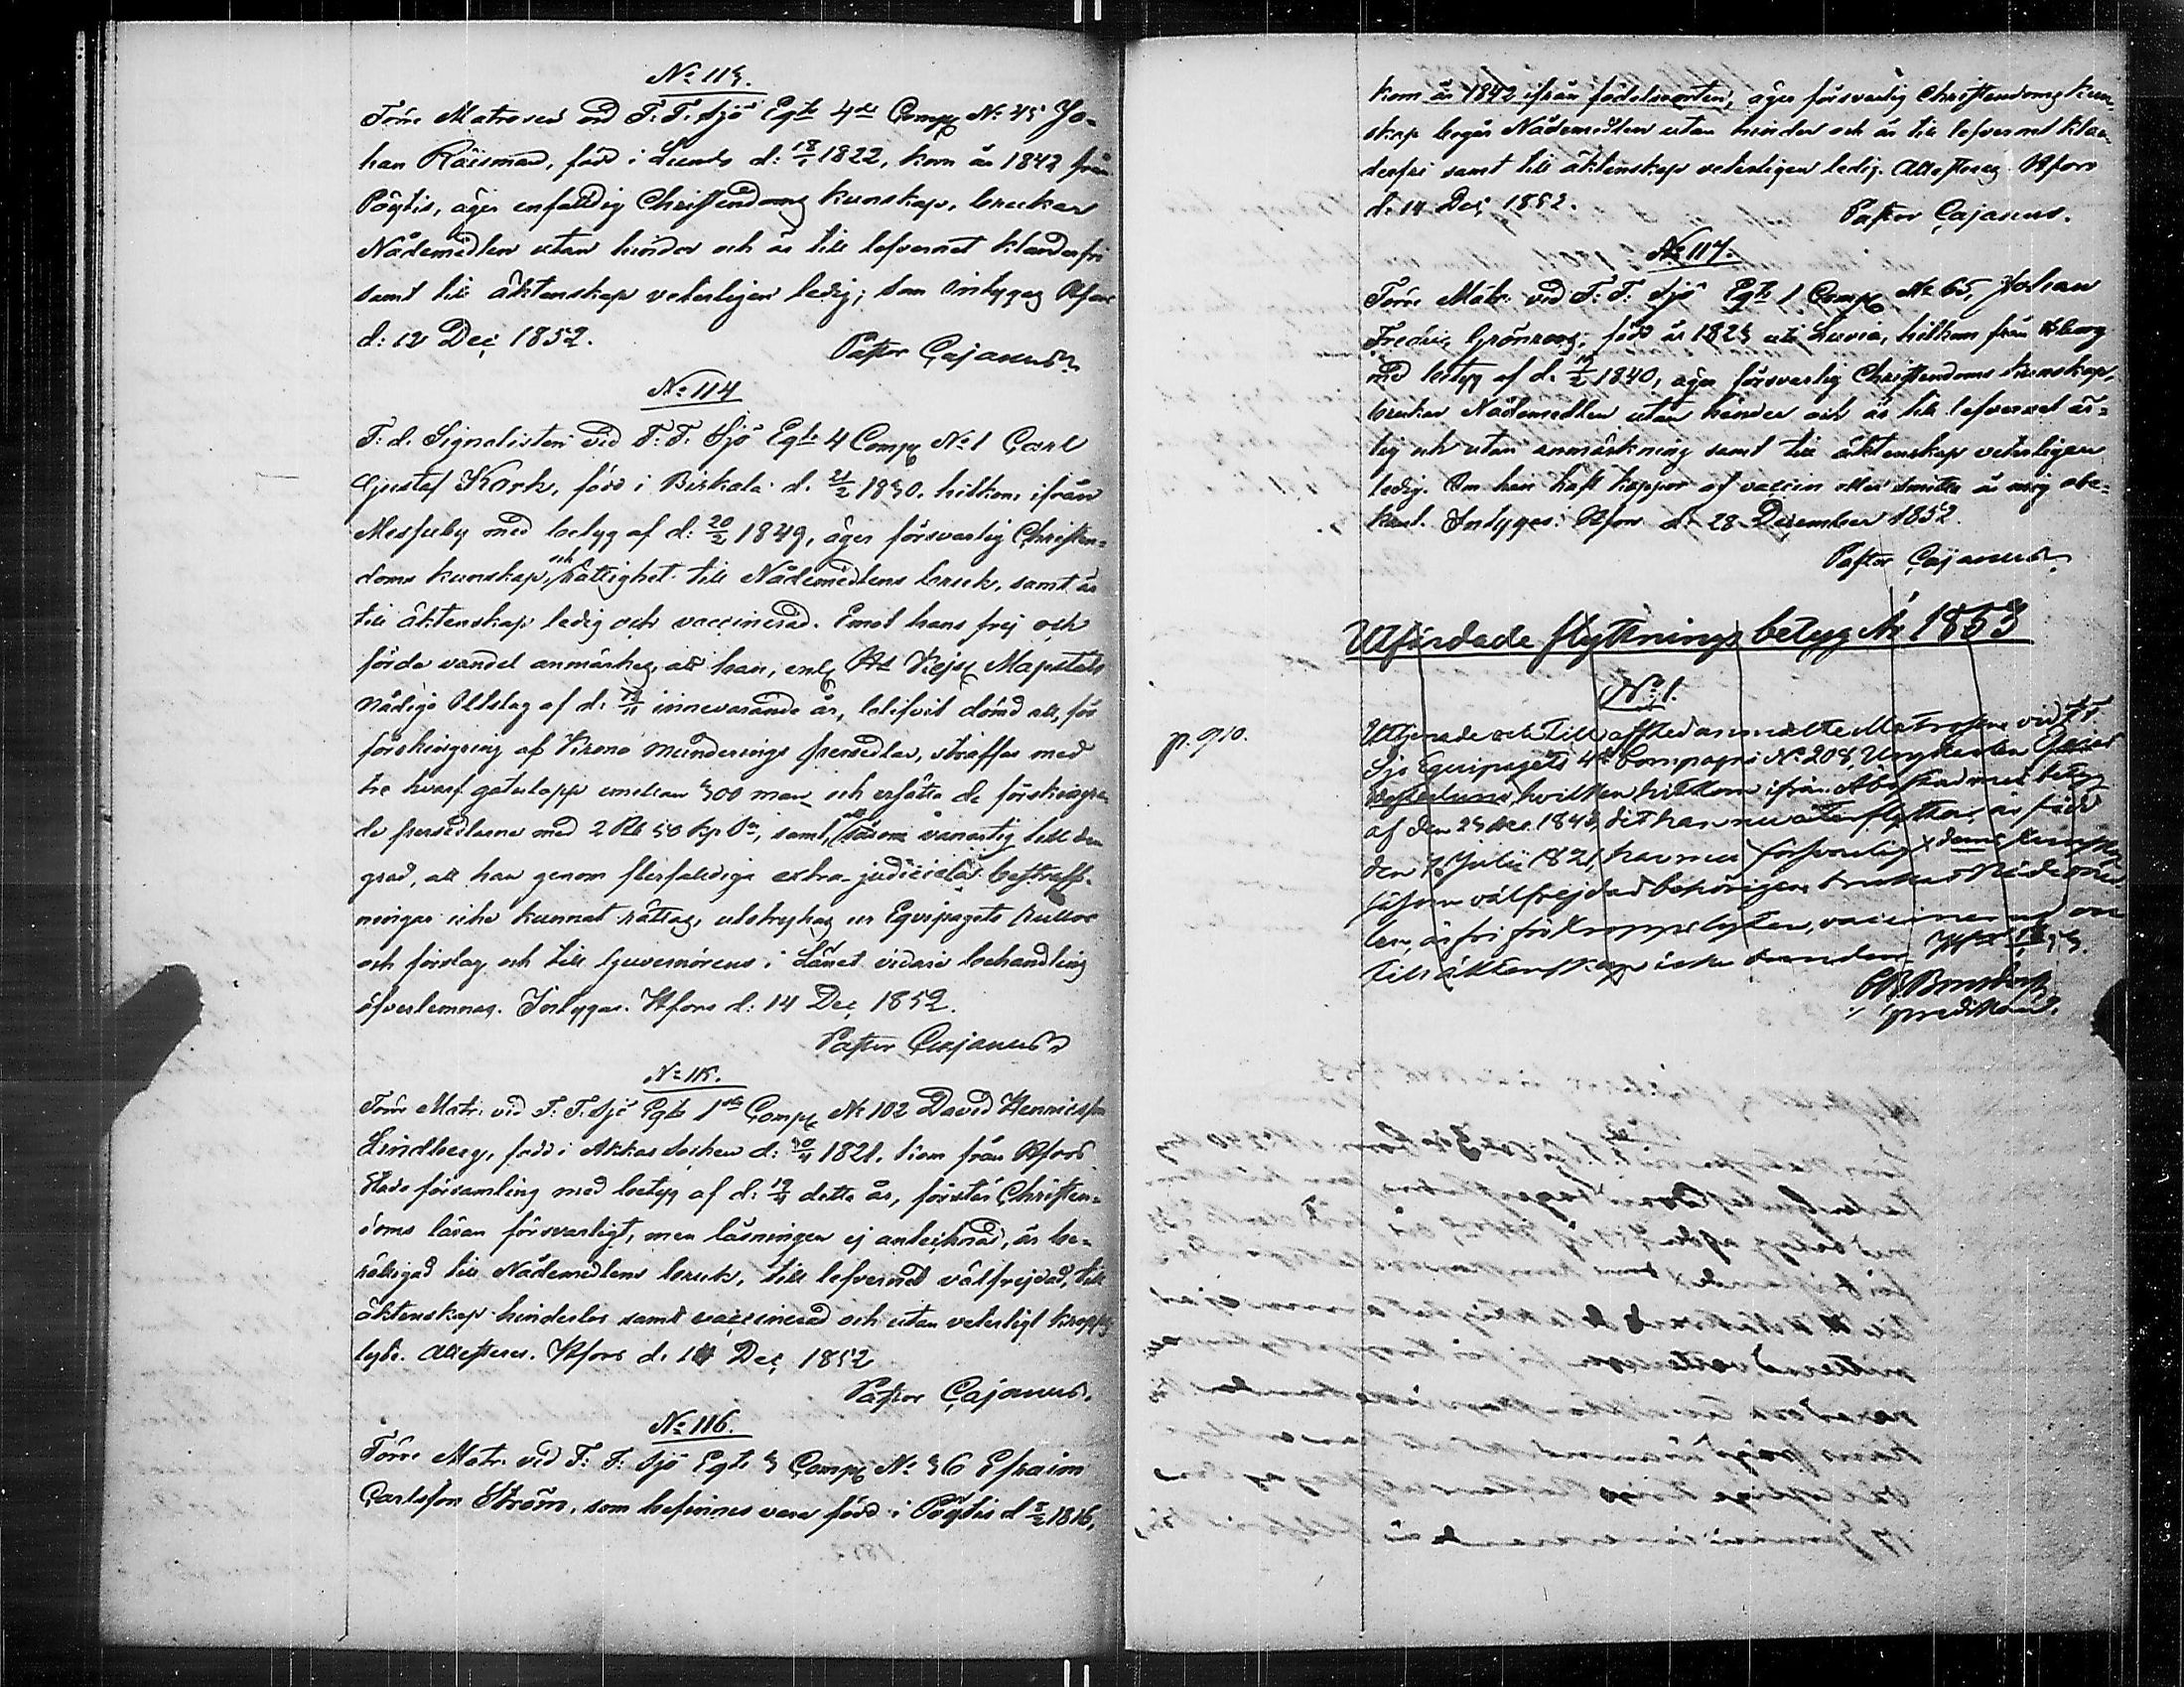 No 113.
Förre Matrosen vid F. F. Sjö Eqts 4de Comp. No 45 Jo-
han Räisman, född i Lundo d: 18/1 1822, kom år 1842 från
Pöytis, äger enfaldig Christendoms kunskap, brukar
Nådemedlen utan hinder och är till lefvernet klanderfri
samt till äktenskap veterligen ledig; som intygas Hfors
d: 12 Dec 1852.
Pastor Cajanus
No 114
F. d. Signalisten vid F. F. Sjö Eqts 4 Comp. No 1 Carl
Gustaf Kork, född i Birkala d. 21/2 1830, hitkom ifrån
Messuby med betyg af d: 20/2 1849, äger försvarlig Christen-
doms kunskap, och rättighet till Nådemedlens bruk, samt är
till äktenskap ledig och vaccinerad. Emot hans frej och
förda vandel anmärkes att han, enl. Kejs. Majestäts
Nådiga Utslag af d: innevarande år, blifvit dömd att, för
förskingring af Krono munderings persedlar, straffas med
tre hvarf gatulopp emellan 300 man och ersätta de förskingra-
de persedlarne med 2 Rub 50 kop Sr, samt, att såsom vanartig till den
grad, att han genom flerfaldiga extra-judiciela bestraff-
ningar icke kunnat rättas, utstrykas ur Equipagets rullor
och förslag och till Guvernörens i Länet vidare behandling
öfverlemnas. Intygar. Hfors d: 14 Dec 1852.
Pastor Cajanus
No 115.
Förre Matr. vid F. F. Sjö Eqts 1sta Comp. No 102 David Henricsson
Lindberg, född i Akkas socken d: 1821. kom från Hfors
Stads församling med betyg af d: detta år, förstår Christen-
doms läran försvarligt, men läsningen ej antecknad, är be-
rättigad till Nådemedlens bruk, till lefvernet välfrejdad, till
äktenskap hinderlös samt vaccinerad och utan veterligt kropps
lyte. Attesteras. Hfors d. 14 Dec 1852
Pastor Cajanus.
No 116.
Förre Matr. vid F. F. Sjö Eqts 3 Comp. No 36 Efraim
Carlsson Ström, som befinnes vara född i Pöytis d 1816,
kom år 1842 ifrån födelseorten, äger försvarlig Christendoms kun-
skap begår Nådemedlen utan hinder och är till lefvernet klan-
derfri samt till äktenskap veterligen ledig. Attesteras Hfors
d. 14 Dec 1852.
Pastor Cajanus.
No 117.
Förre Matr. vid F. F. Sjö Eqts 1 Comp. No 65, Johan
Fredric Grönroos, född år 1823 uti Luvia, hitkom från
med betyg af d. 1840, äger försvarlig Christendoms kunskap,
brukar Nådemedlen utan hinder och är till lefvernet är-
lig och utan anmärkning samt till äktenskap veterligen
ledig. Om han haft koppor af vaccin eller smitta är mig obe-
kant. Intygas: Hfors d. 28 December 1852.
Pastor Cajanus
Utfärdade flyttnings betyg År 1853
No 1.
p. 910.
Uttjenade och till afsked anmälte Matrosen vid F. F.
Sjö Equipagets 4de Compagni No 208, Ungkarlen
hvilken hitkom ifrån Åbo stad med betyg
af den 23 Dec. 1843, dit han nu återflyttar, är född
den Julii 1821, har nu försvarlig Xdoms kunskap
såsom välfrejdad behörigen brukat Nådemed-
len, är fri från kroppslyten, vaccinerad och
till äktenskap icke bunden. Hfors
Bonsdorff
predikant.